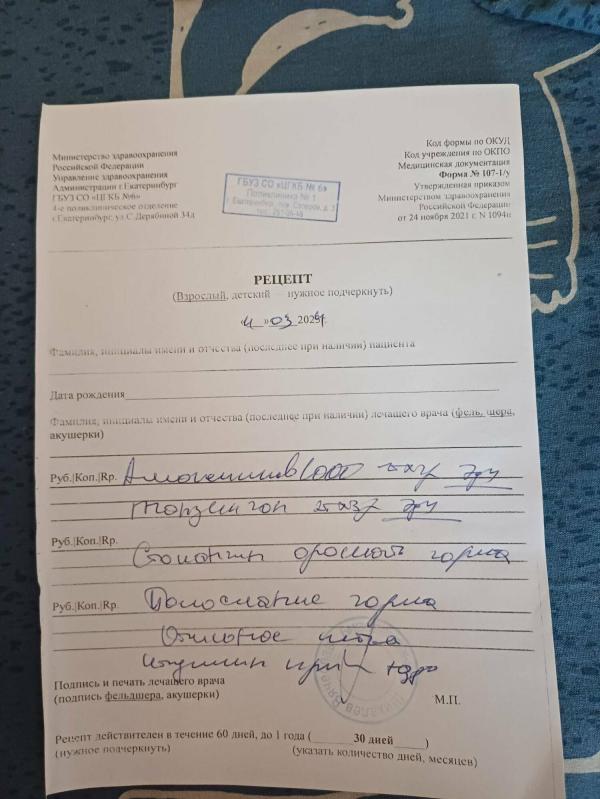 Министерство здравоохранения
Российской Федерации
Управление здравоохранения
Администрации г.Екатеринбург
ГБУЗ СО «ЦГКБ №6»
4-е поликлиническое отделение
г.Екатеринбург, ул.С.Дерябиной 34д
ГБУЗ СО «ЦГКБ № 6»
Поликлиника № 1
г. Екатеринбург,
Код формы по ОКУД
Код учреждения по ОКПО
Медицинская документация
Форма № 107-1/у
Утвержденная приказом
Министерством здравоохранения
Российской Федерации
от 24 ноября 2021 г. N 1094н
РЕЦЕПТ
(Взрослый, детский — нужное подчеркнуть)
03 202 г.
Фамилия, инициалы имени и отчества (последнее при наличии) пациента
Дата рождения
Фамилия, инициалы имени и отчества (последнее при наличии) лечащего врача (фельдшера,
акушерки)
Руб.|Коп.|Rp. 1000
Тонзилгон
Руб.|Коп.|Rp.
Стопангин орошать горла
Руб.|Коп.|Rp. Полоскание горла
при
Подпись и печать лечащего врача
(подпись фельдшера, акушерки) М.П.
Рецепт действителен в течение 60 дней, до 1 года (30 дней)
(нужное подчеркнуть) (указать количество дней, месяцев)